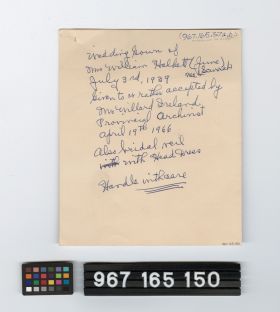 (967.165.57a,b)
Wedding Gown of
Mrs William Halkett (June)
July 3rd, 1939 nee
Given to or rather accepted by
Mr Willard Ireland
Provincial Archivist
April 19th 1966
Also bridal veil
with with Head Dress
Handle with care
967 165 150